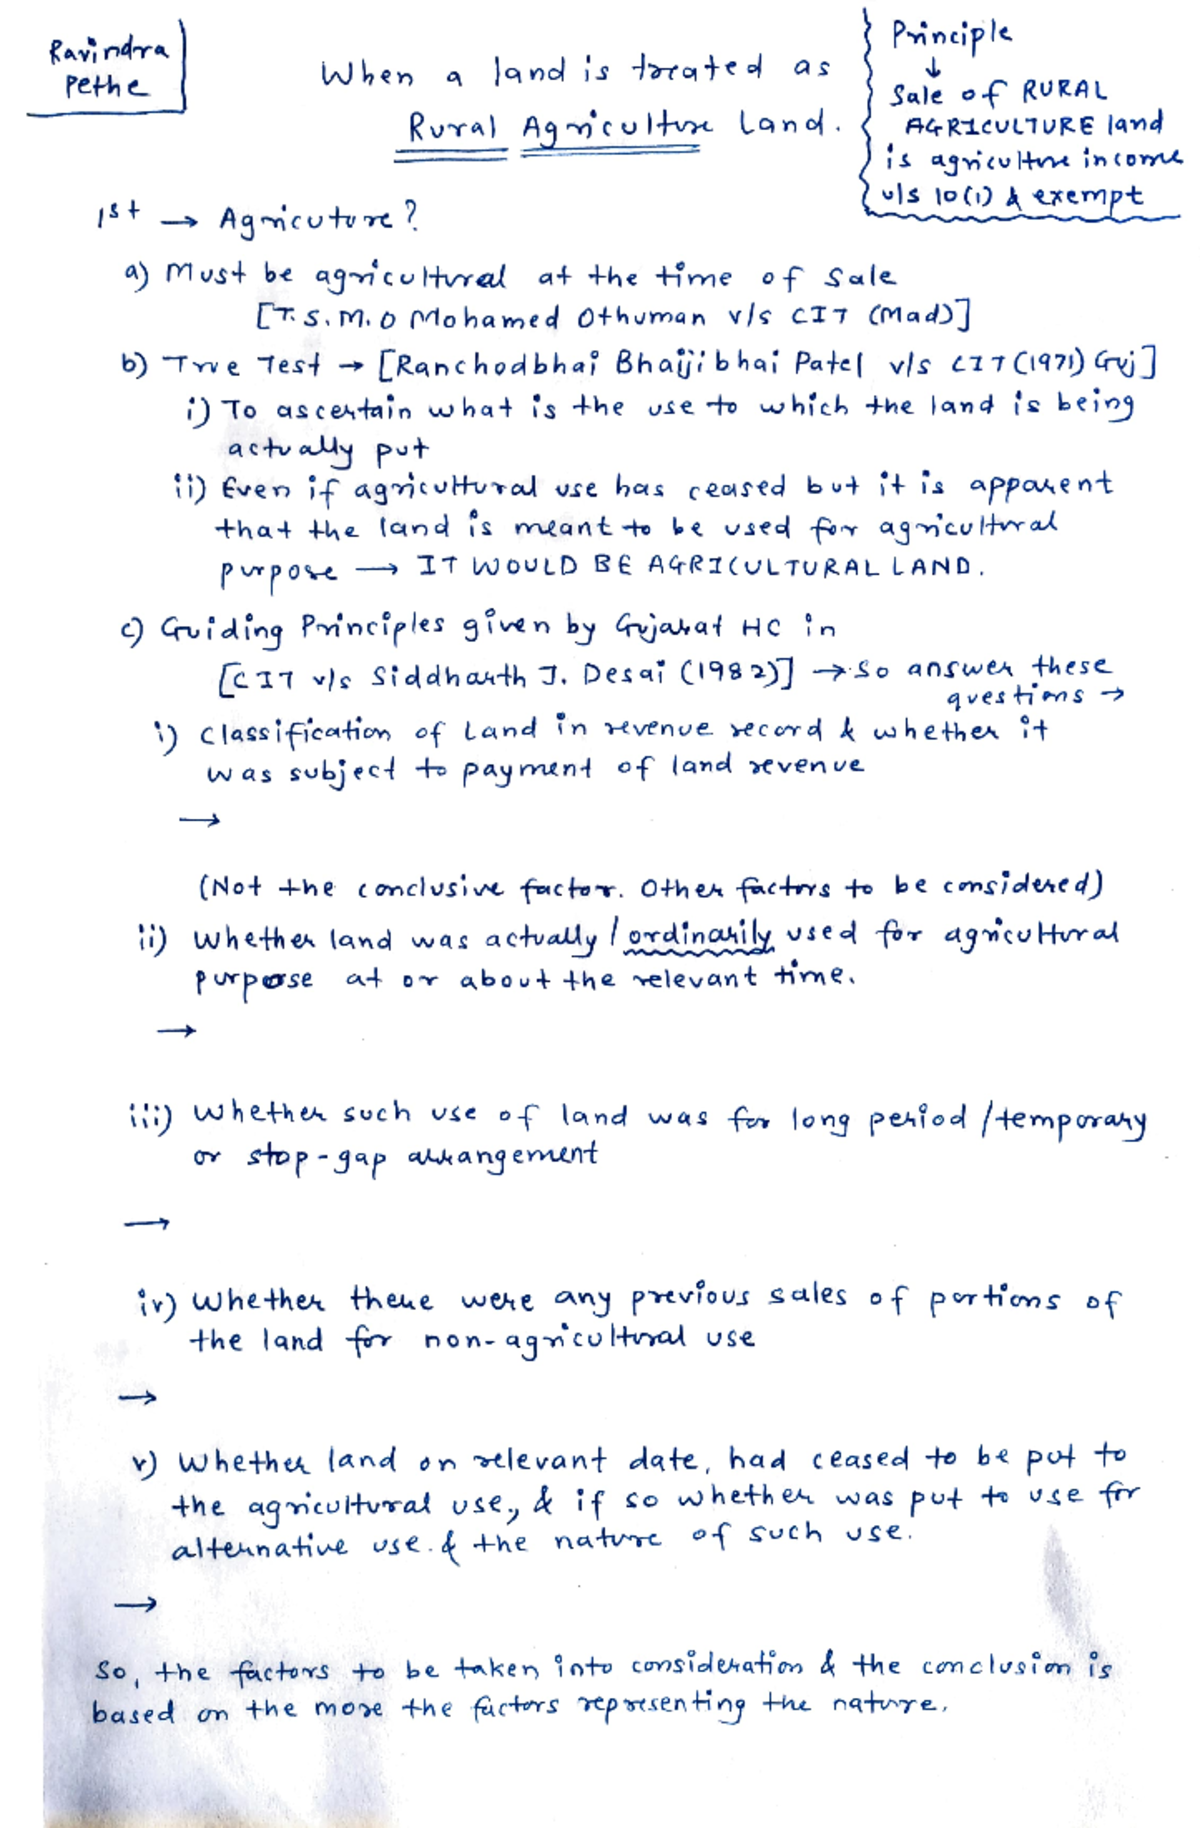 Ravindra
Pethe
When a land is treated as
Rural Agriculture Land.
Principle
↓
Sale of RURAL
AGRICULTURE land
is agriculture income
u/s 10(1) & exempt
1st → Agricuture?
a) Must be agricultural at the time of sale
[T.S.M.O Mohamed Othuman v/s CIT (Mad)]
b) True Test → [Ranchodbhai Bhaijibhai Patel v/s CIT (1971) Guj]
i) To ascertain what is the use to which the land is being
actually put
ii) Even if agricultural use has ceased but it is apparent
that the land is meant to be used for agricultural
purpose → IT WOULD BE AGRICULTURAL LAND.
c) Guiding Principles given by Gujarat HC in
[CIT v/s Siddharth J. Desai (1982)] → So answer these
questions →
i) Classification of Land in revenue record & whether it
was subject to payment of land revenue
→
(Not the conclusive factor. Other factors to be considered)
ii) Whether land was actually / ordinarily used for agricultural
purpose at or about the relevant time.
→
iii) Whether such use of land was for long period / temporary
or stop-gap arrangement
→
iv) Whether there were any previous sales of portions of
the land for non-agricultural use
→
v) Whether land on relevant date, had ceased to be put to
the agricultural use, & if so whether was put to use for
alternative use. & the nature of such use.
→
So, the factors to be taken into consideration & the conclusion is
based on the more the factors representing the nature.